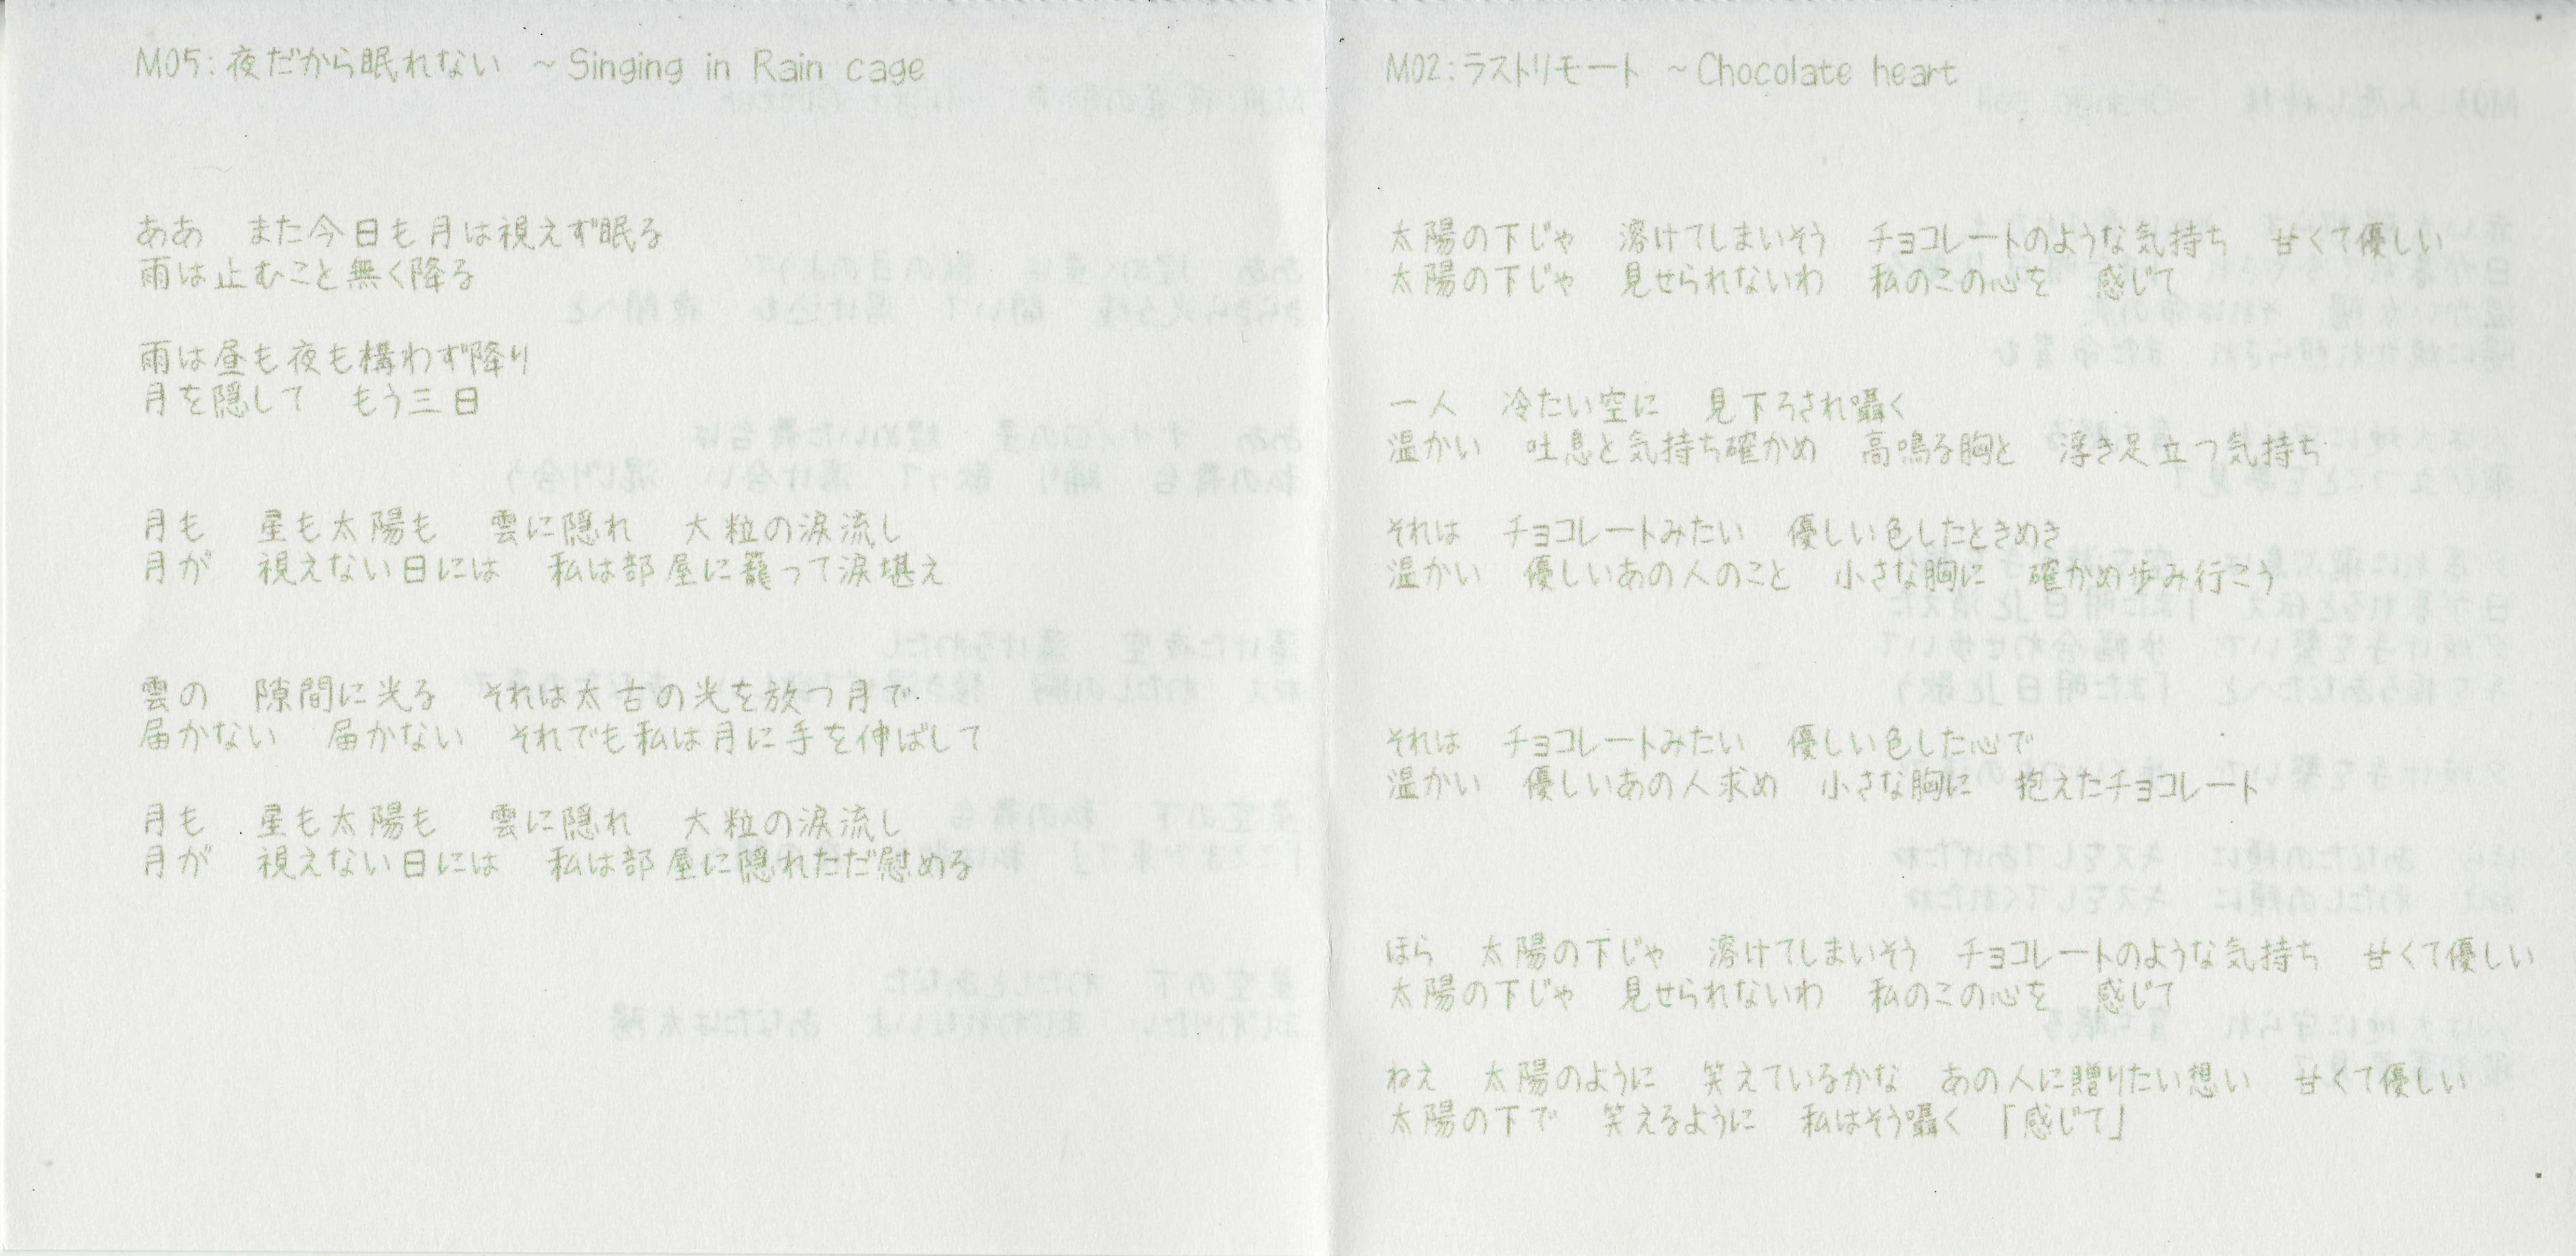 M05:夜だから眠れない ~Singing in Rain cage
ああ　また今日も月は視えず眠る
雨は止むこと無く降る
雨は昼も夜も構わず降り
月を隠して　もう三日
月も　星も太陽も　雲に隠れ　大粒の涙流し
月が　視えない日には　私は部屋に籠って涙堪え
雲の　隙間に光る　それは太古の光を放つ月で
届かない　届かない　それでも私は月に手を伸ばして
月も　星も太陽も　雲に隠れ　大粒の涙流し
月が　視えない日には　私は部屋に隠れただ慰める
M02:ラストリモート ~Chocolate heart
太陽の下じゃ　溶けてしまいそう　チョコレートのような気持ち　甘くて優しい
太陽の下じゃ　見せられないわ　私のこの心を　感じて
一人　冷たい空に　見下ろされ囁く
温かい　吐息と気持ち確かめ　高鳴る胸と　浮き足立つ気持ち
それは　チョコレートみたい　優しい色したときめき
温かい　優しいあの人のこと　小さな胸に　確かめ歩み行こう
それは　チョコレートみたい　優しい色した心で
温かい　優しいあの人求め　小さな胸に　抱えたチョコレート
ほら　太陽の下じゃ　溶けてしまいそう　チョコレートのような気持ち　甘くて優しい
太陽の下じゃ　見せられないわ　私のこの心を　感じて
ねえ　太陽のように　笑えているかな　あの人に贈りたい想い　甘くて優しい
太陽の下で　笑えるように　私はそう囁く　「感じて」